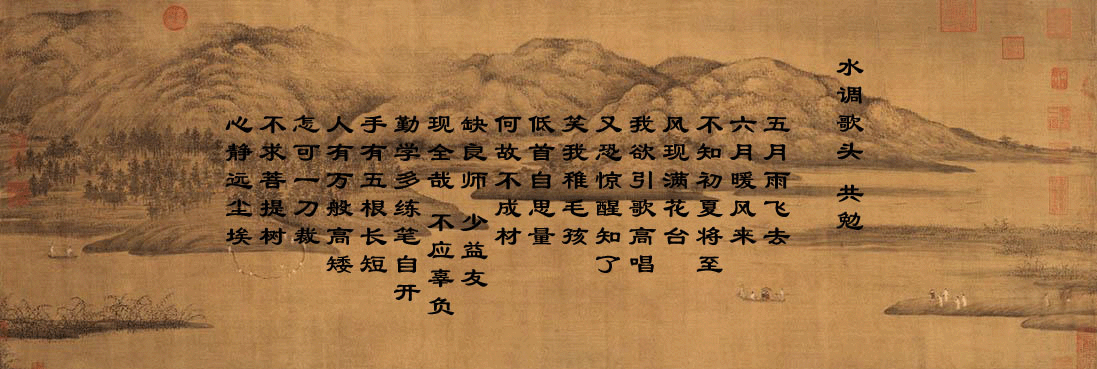 水调歌头 共勉
五月雨飞去
六月暖风来
不知初夏将至
风现满花台
我欲引歌高唱
又恐惊醒知了
笑我稚毛孩
低首自思量
何故不成材
缺良师 少益友
现全哉 不应辜负
勤学多练笔自开
手有五根长短
人有万般高矮
怎可一刀裁
不求菩提树
心静远尘埃